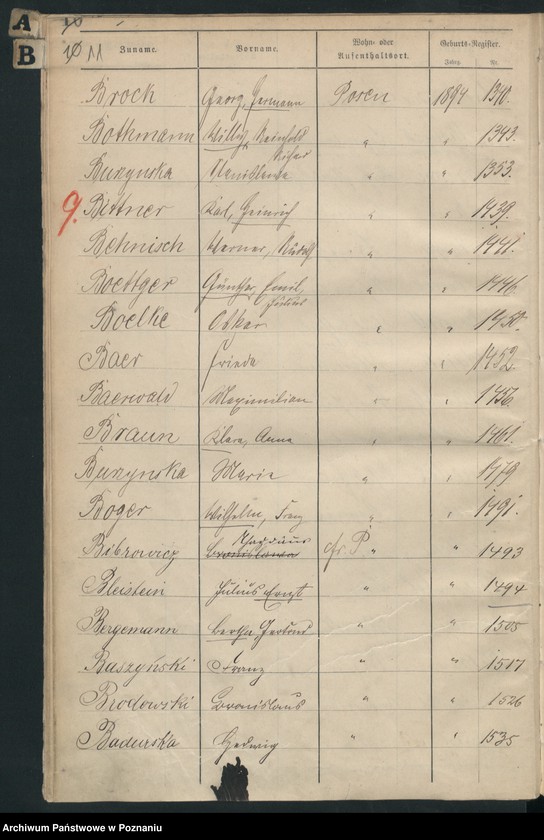 A
B
11
Zuname. Vorname. Wohn- oder Aufenthaltsort. Geburts-Register.
Jahrg. Nr.
Brock Georg, Hermann Posen 1894 1340.
Bothmann Willy, Reinhold " " 1343.
Richard
Buzynska Stanislawa " " 1353.
9. Bittner Karl, Heinrich " " 1439.
Behnisch Werner, Rudolf " " 1441.
Boettger Günther, Emil, " " 1446.
Boelke Oskar " " 1450.
Baer Frieda " " 1452.
Baerwald Maximilian " " 1456.
Braun Klara, Anna " " 1461.
Buzynska Marie " " 1479
Boger Wilhelm, Franz " " 1491.
Thaddäus
Bibrowicz Bronislawa " " 1493
Bleistein Julius Ernst " " 1494
Bergemann Bertha, Gertrud " " 1505
Baszyński Franz " " 1517
Brodowski Bronislaus " " 1526
Badurska Hedwig " " 1535
Archiwum Państwowe w Poznaniu